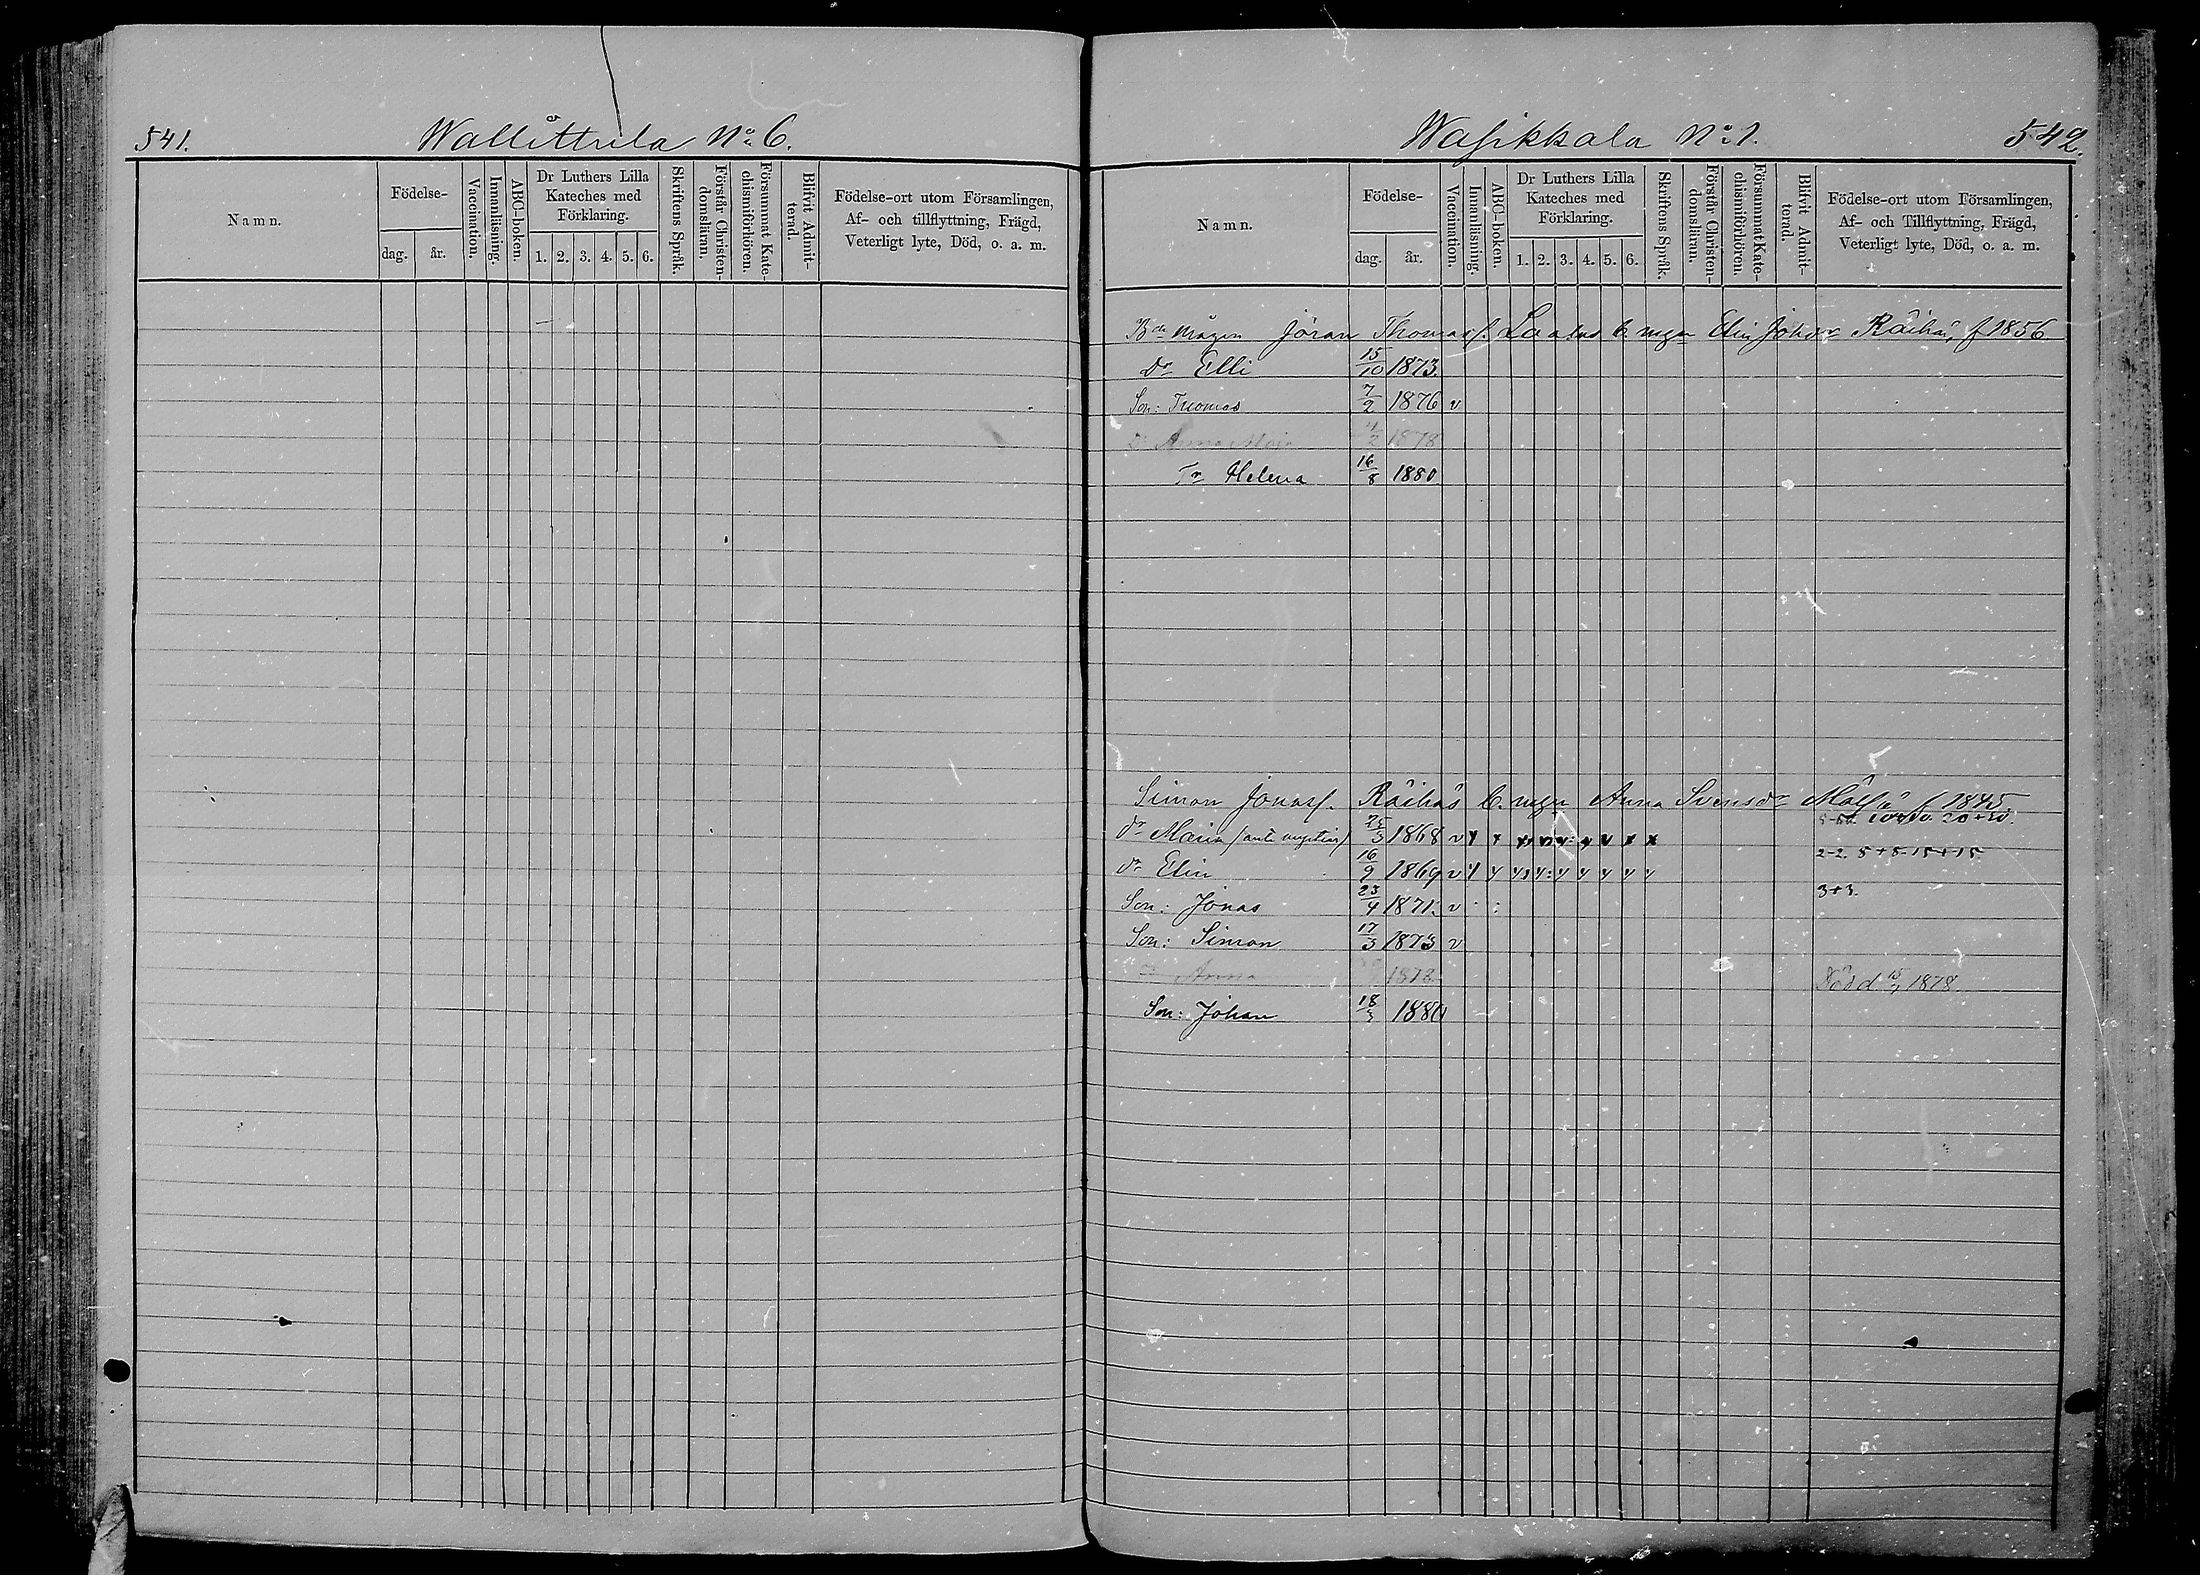 541.
Wallittula No 6.
Namn.
Födelse-
dag.
år.
Vaccination.
Innanläsning.
ABC-boken.
Dr Luthers Lilla
Kateches med
Förklaring.
1. 2. 3. 4. 5. 6.
Skriftens Språk.
Förstår Christen-
domsläran.
Försummat Kate-
chismiförhören.
Blifvit Admit-
terad.
Födelse-ort utom Församlingen,
Af- och tillflyttning, Frägd,
Veterligt lyte, Död, o. a. m.
Wasikkala No 1.
542.
Namn.
Födelse-
dag.
år.
Vaccination.
Innanläsning.
ABC-boken.
Dr Luthers Lilla
Kateches med
Förklaring.
1. 2. 3. 4. 5. 6.
Skriftens Språk.
Förstår Christen-
domsläran.
Försummat Kate-
chismiförhören.
Blifvit Admit-
terad.
Födelse-ort utom Församlingen,
Af- och Tillflyttning, Frägd,
Veterligt lyte, Död, o. a. m.
Bde mågen Jöran Thomasf. Elin Johsdr Räihä, f 1856.
Dr Elli 15/10 1873.
Son: Thomas 7/2 1876 v
Dr Anna Maja 4/2 1878
Tr Helena 16/8 1880
Simon Jonasf. Räihäs Anna Svensdr f 1845.
dr Maria 25/3 1868 v
dr Elin 16/9 1869 v 2-2. 5+5 15+15
Son: Jonas 23/4 1871. v 3+3.
Son: Simon 17/3 1873 v
Anna 1878 Död 15/7 1878
Son: Johan 18/3 1880